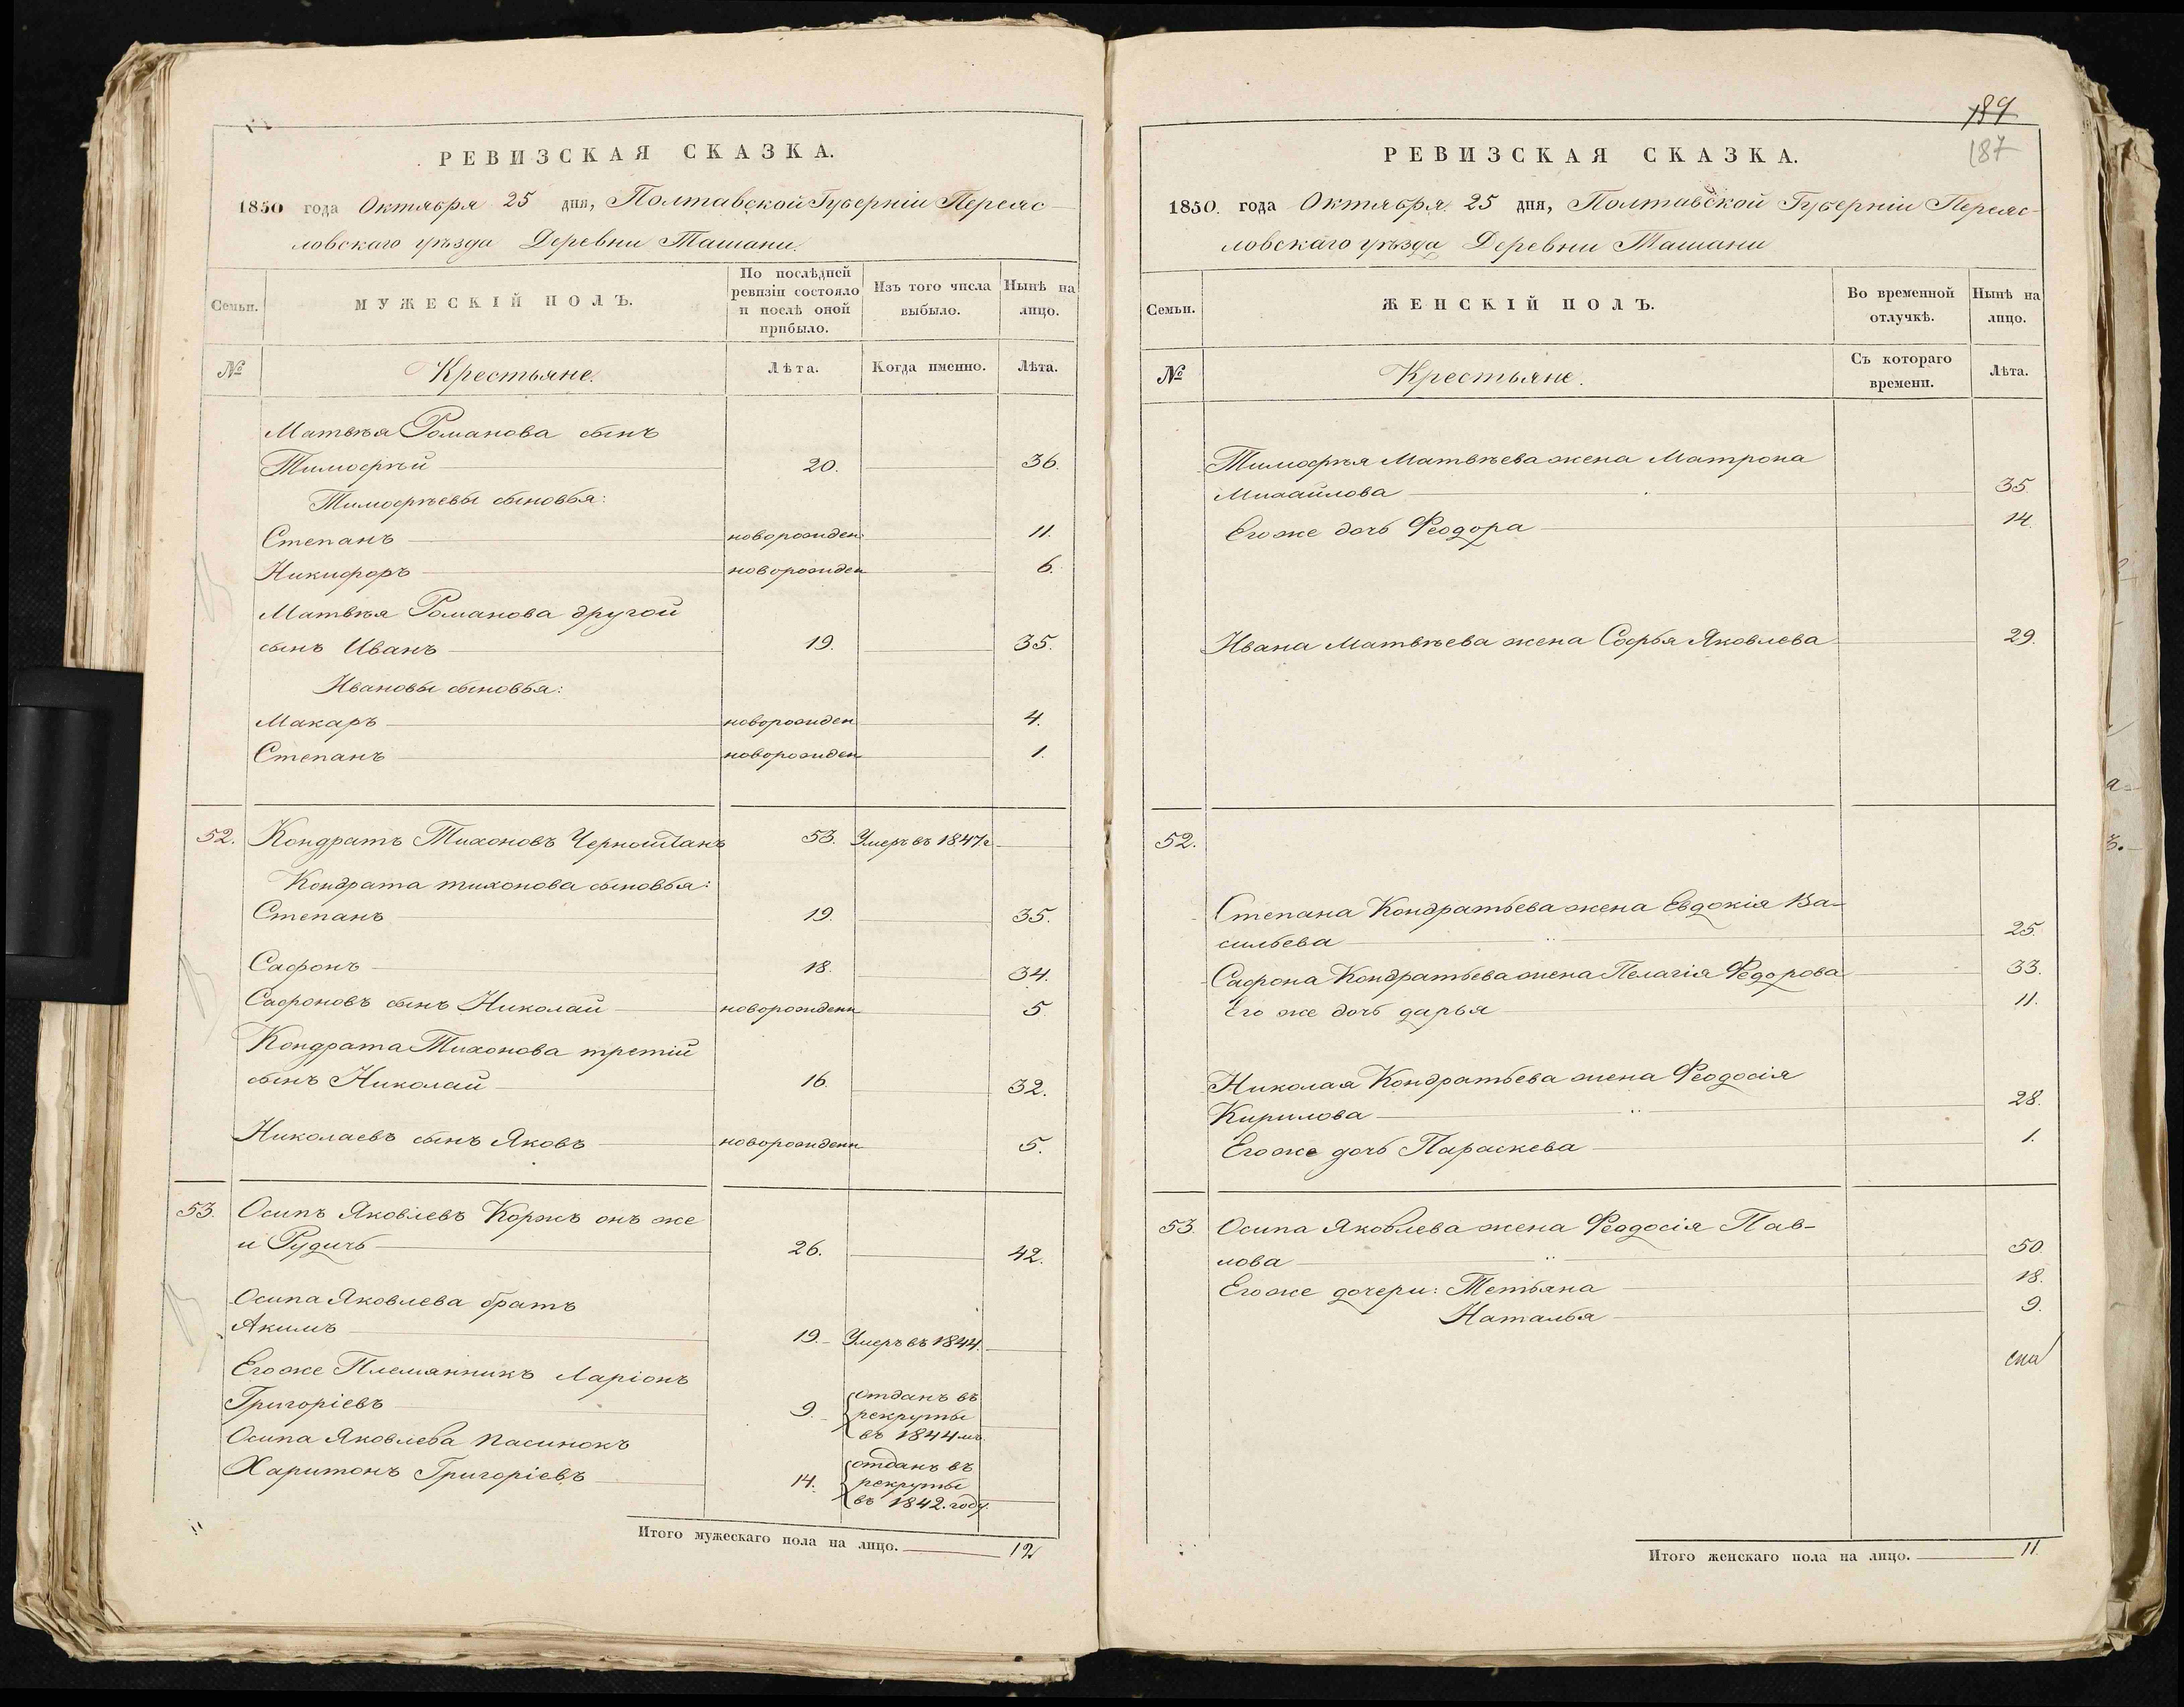 РЕВИЗСКАЯ СКАЗКА.
1850 года Октября 25 дня, Полтавской Губерніи Переяс-
ловскаго уѣзда Деревни Ташани.
Семьи.
МУЖЕСКІЙ ПОЛЪ.
По послѣдней
ревизіи состояло
и послѣ оной
прибыло.
Изъ того числа
выбыло.
Нынѣ на
лицо.
№
Крестьяне.
Лѣта.
Когда именно.
Лѣта.
Матвѣя Романова сынъ
Тимофѣй 20. 36.
Тимофѣевы сыновья:
Степанъ новорожден. 11.
Никифоръ новорожден 6.
Матвѣя Романова другой
сынъ Иванъ 19. 35.
Ивановы сыновья:
Макаръ новорожден 4.
Степанъ новорожден 1.
52. Кондратъ Тихоновъ 53. Умеръ въ 1847г
Кондрата тихонова сыновья:
Степанъ 19. 35.
Сафонъ 18. 34.
Сафоновъ сынъ Николай новорожденн 5
Кондрата Тихонова третій
сынъ Николай 16. 32.
Николаевъ сынъ Яковъ новорожденн 5.
53. Осипъ Яковлевъ Коржъ онъ же
и Рудичъ 26. 42.
Осипа Яковлева братъ
Акимъ 19. Умеръ въ 1844.
Егоже Племянникъ Ларіонъ
Григоріевъ 9. отданъ въ
рекруты
въ 1844мъ.
Осипа Яковлева пасинокъ
Харитонъ Григоріевъ 14. отданъ въ
рекруты
въ 1842. году.
Итого мужескаго пола на лицо. 12
189
187
РЕВИЗСКАЯ СКАЗКА.
1850. года Октября 25 дня, Полтавской Губерніи Переяс-
ловскаго уѣзда Деревни Ташани
Семьи.
ЖЕНСКІЙ ПОЛЪ.
Во временной
отлучкѣ.
Нынѣ на
лицо.
№
Крестьяне.
Съ котораго
времени.
Лѣта.
Тимофѣя Матвѣева жена Матрона
Михайлова 35.
Егоже дочь Феодора 14.
Ивана Матвѣева жена Софья Яковлева 29.
52.
Степана Кондратьева жена Евдокія Ва-
сильева 25.
Сафона Кондратьева жена Пелагія Федорова 33.
Его же дочь дарья 11.
Николая Кондратьева жена Феодосія
Кирилова 28.
Егоже дочь Параскева 1.
53. Осипа Яковлева жена Феодосія Пав-
лова 50.
Егоже дочери: Тетьяна 18.
Наталья 9.
Итого женскаго пола на лицо. 11